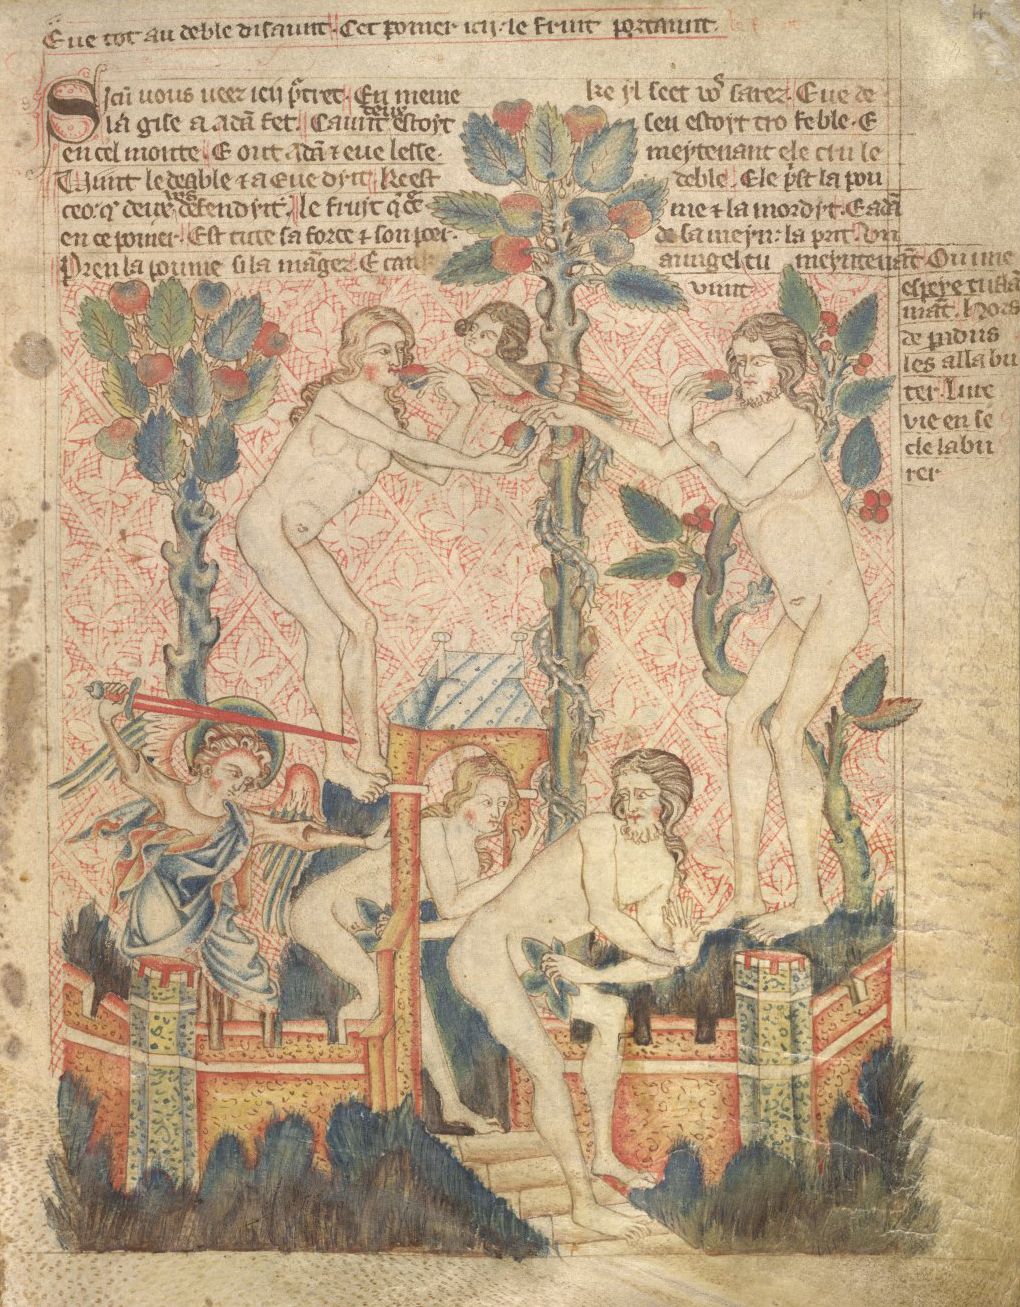 Eue tot au deble disaunt. Cet pomer icy. le fruit portaunt.
Sicū uous ueez icy p̄tret. En meme
ia gise a adā fet. Cauint deuꝫ estoyt
en cel monte. E ont adā ⁊ eue lesse.
Vint le deable ⁊ a Eue dyt. Ke est
ceo. q̄ deus vos defendyt. le fruyt q̄ c̄
en ce pomer. Est tute sa force ⁊ son poer.
Pren la poume si la māgez. E
ke yl seet vo⁹ sarez. Eue de
seu estoyt tro feble. E
meytenant ele cru le
deble. Ele p̄st la pou
me ⁊ la mordyt. E adā
de sa meyn: la prit. Vn
aungel cu meyntenāt. Ou une
vint
espeye
māt. Hors
de pdiis
les alla bu
ter. Lure
vie en se
cle labu
rer